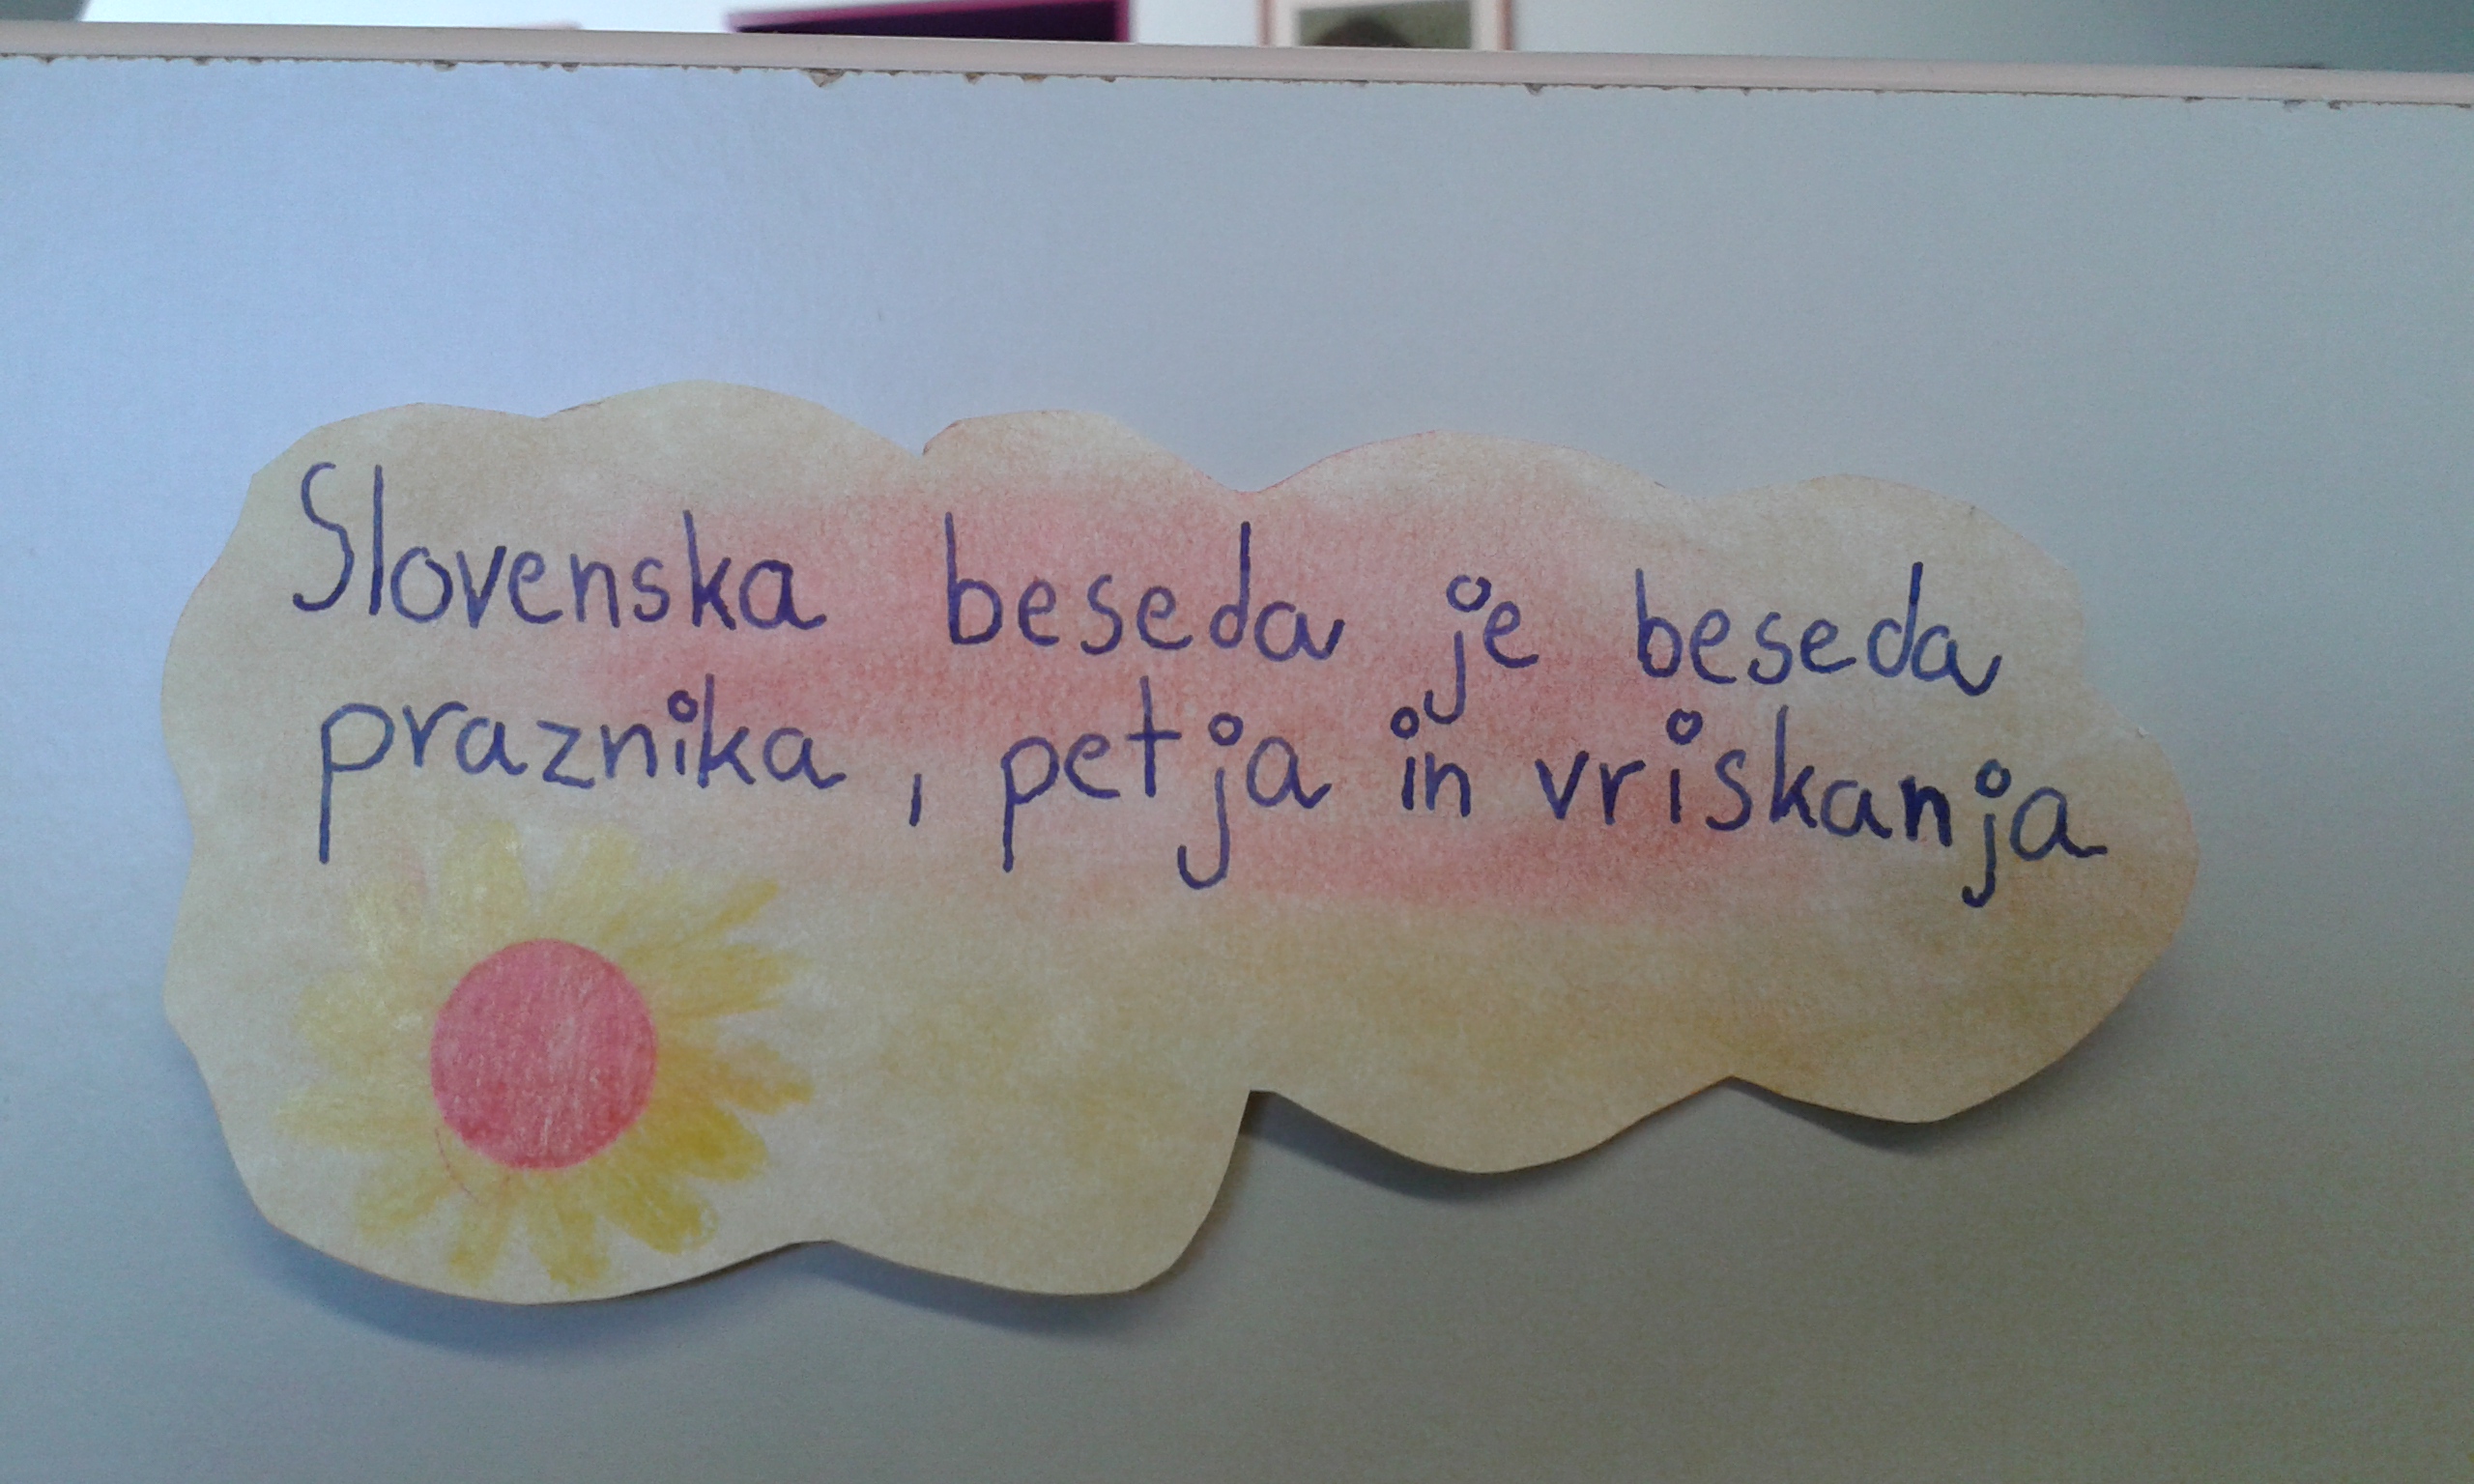 Slovenska beseda je beseda
praznika, petja in vriskanja